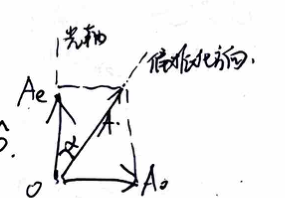 光轴
偏振化方向.
Ae
A.
α
O
A₀